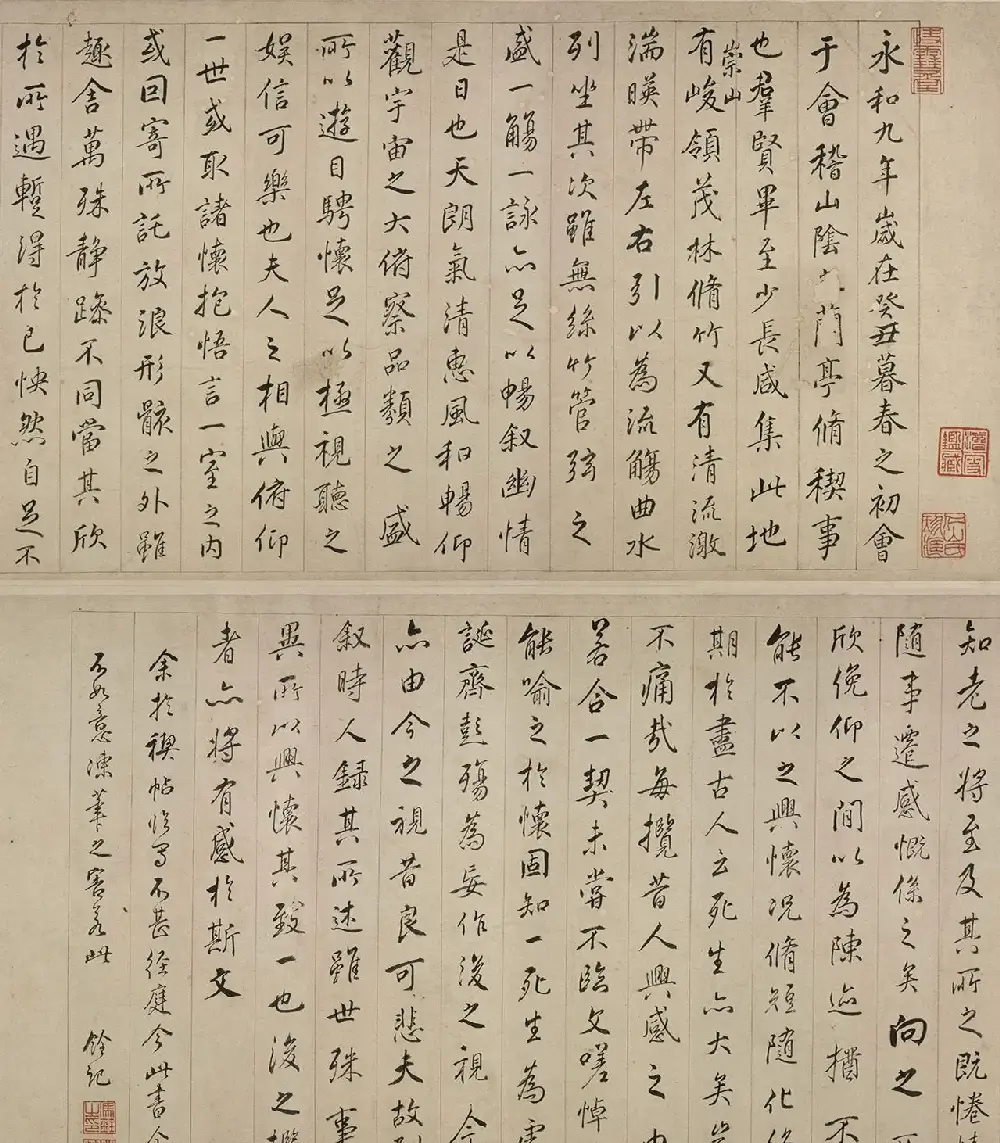 永和九年歲在癸丑暮春之初會
于會稽山陰之蘭亭脩稧事
也羣賢畢至少長咸集此地
有崇山峻領茂林脩竹又有清流激
湍暎帶左右引以為流觴曲水
列坐其次雖無絲竹管弦之
盛一觴一詠亦足以暢叙幽情
是日也天朗氣清惠風和暢仰
觀宇宙之大俯察品類之盛
所以遊目騁懷足以極視聽之
娛信可樂也夫人之相與俯仰
一世或取諸懷抱悟言一室之內
或因寄所託放浪形骸之外雖
趣舍萬殊静躁不同當其欣
於所遇暫得於己怏然自足不
知老之將至及其所之既惓
随事遷感慨係之矣向之
欣俛仰之間以為陳迹猶不
能不以之興懷况脩短随化
期於盡古人云死生亦大矣
不痛哉每攬昔人興感之
若合一契未嘗不臨文嗟悼
能喻之於懷固知一死生為
誕齊彭殤為妄作後之視今
亦由今之視昔良可悲夫故
叙時人録其所述雖世殊事
異所以興懷其致一也後之
者亦將有感於斯文
余於禊帖臨寫不甚徑庭今此書
不如意凍筆之害若此 銓記